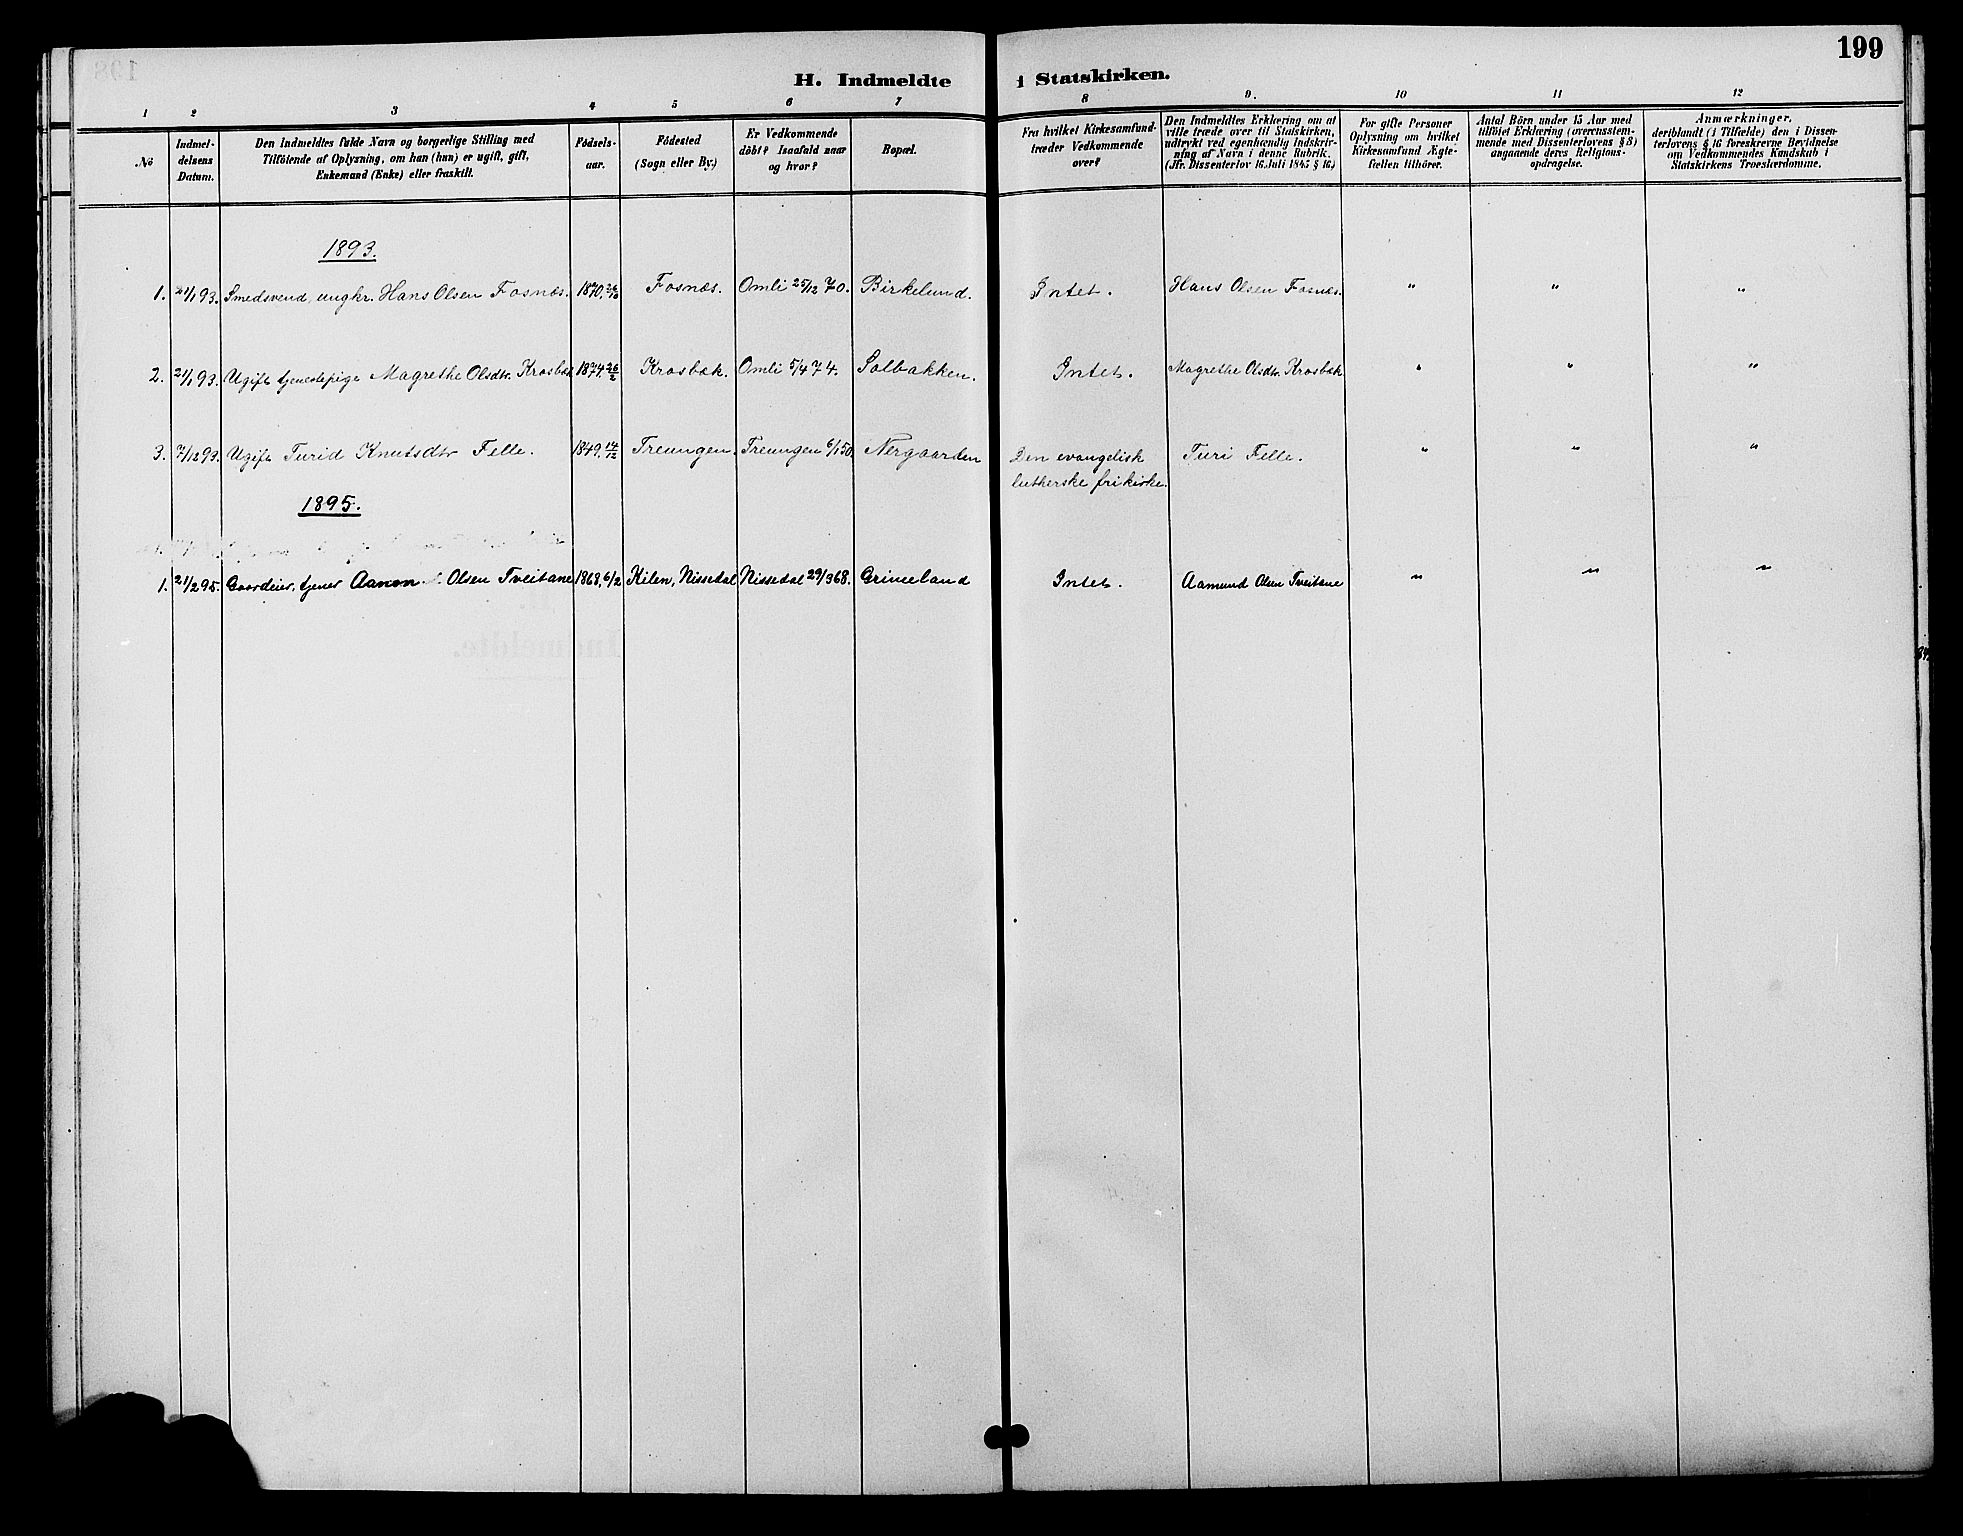 199
H. Indmeldte i Statskirken.
1 2 3 4 5 6 7 8 9. 10 11 12
No
Indmeldelsens Datum.
Den Indmeldtes fulde Navn og borgerlige Stilling med
Tilföiende af Oplysning, om han (hun) er ugift, gift,
Enkemand (Enke) eller fraskilt.
Födsels-
aar.
Födested
(Sogn eller By.)
Er Vedkommende
döbt? Isaafald naar
og hvor?
Bopæl.
Fra hvilket Kirkesamfund
træder Vedkommende
over?
Den Indmeldtes Erklæring om at
ville træde over til Statskirken,
udtrykt ved egenhændig Indskriv-
ning af Navn i denne Rubrik.
(Jfr. Dissenterlov 16. Juli 1845 § 16.)
For gifte Personer
Oplysning om hvilket
Kirkesamfund Ægte-
fællen tilhörer.
Antal Börn under 15 Aar med
tilföiet Erklæring (overensstem-
mende med Dissenterlovens § 8)
angaaende deres Religions-
opdragelse.
Anmærkninger,
deriblandt (i Tilfælde) den i Dissen-
terlovens § 16 foreskrevne Bevidnelse
om Vedkommendes Kundskab i
Statskirkens Troeslærdomme.
1893.
1. 21/1 93. Smedsvend, ungkr. Hans Olsen Fosnæs. 1870, 26/10 Fosnæs. Omli 25/12 70. Birkelund. Intet. Hans Olsen Fosnæs. " " "
2. 21/1 93. Ugift tjenestepige Magrethe Olsdtr. Krosbæk 1874, 26/2 Krosbæk. Omli 5/4 74. Solbakken. Intet. Magrethe Olsdtr. Krosbæk " " "
3. 7/12 93. Ugift Turid Knutsdtr Felle. 1849, 14/12 Treungen. Treungen 6/1 50. Nergaarden Den evangelisk Turi Felle. " " "
lutherske frikirke.
1895.
1. 21/2 95. Gaardeier, tjener Aanon Olsen Tveitane 1868, 6/2 Kilen, Nissedal Nissedal 29/3 68. Grimeland Intet. Aamund Olsen Tveitane " " "